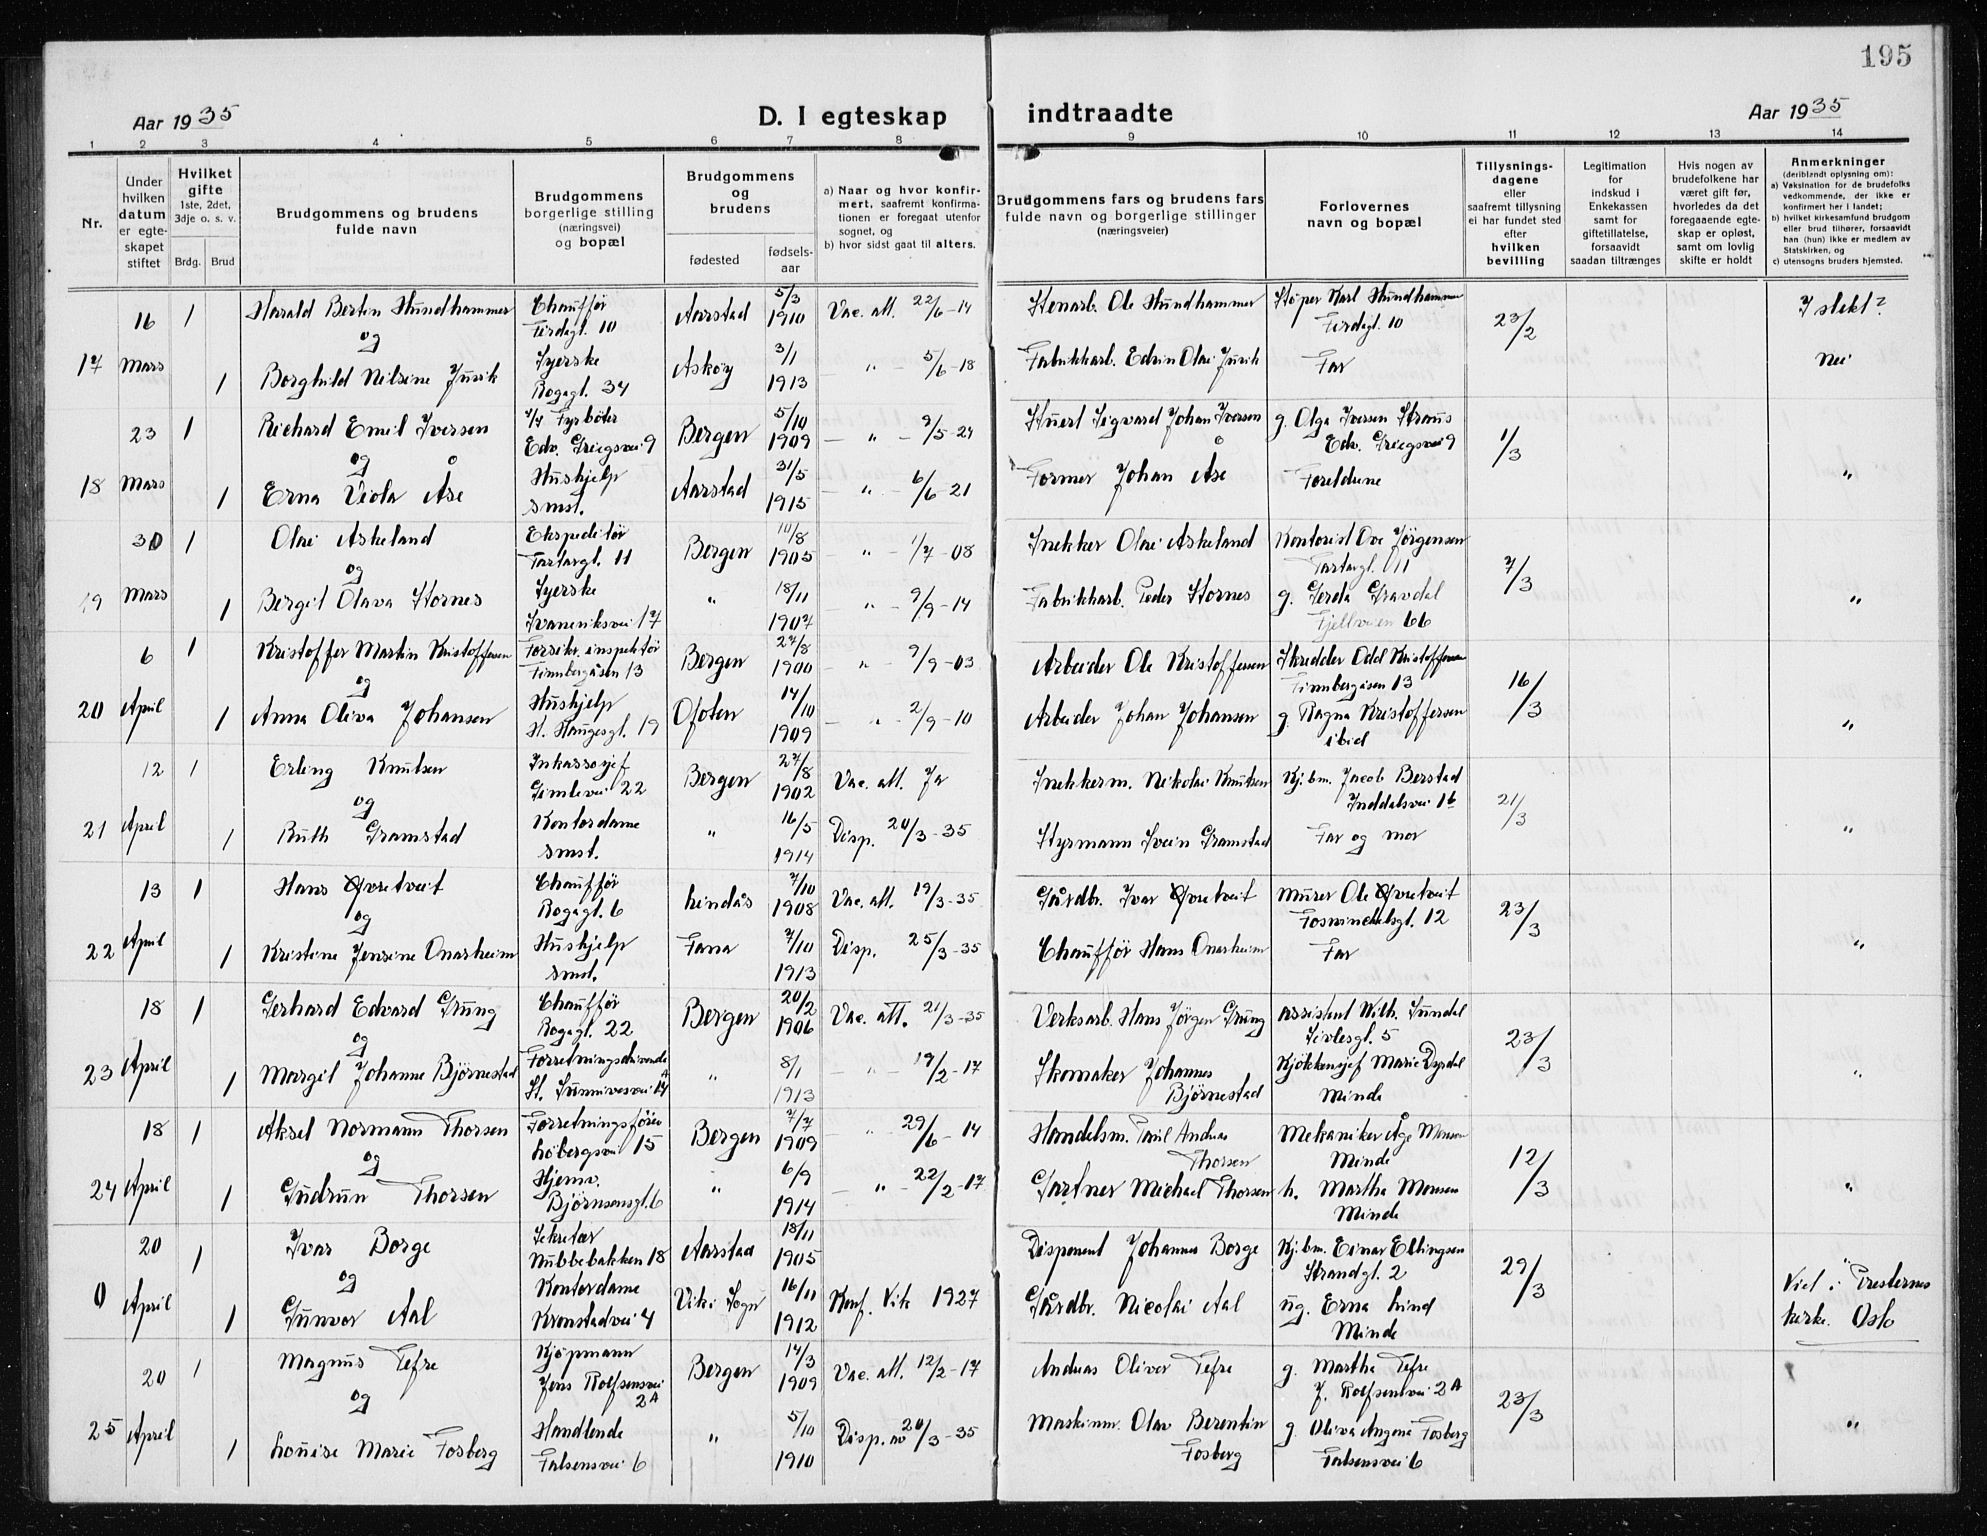 195
Aar 1935
D. I egteskap indtraadte
Aar 1935
1 2 3 4 5 6 7 8 9 10 11 12 13 14
Nr.
Under hvilken datum er egteskapet stiftet
Hvilket gifte 1ste, 2det, 3dje o. s. v.
Brdg. Brud
Brudgommens og brudens fulde navn
Brudgommens borgerlige stilling (næringsvei) og bopæl
Brudgommens og brudens
fødested
fødsels-aar
a) Naar og hvor konfirmert, saafremt konfirmationen er foregaat utenfor sognet, og
b) hvor sidst gaat til alters.
Brudgommens fars og brudens fars fulde navn og borgerlige stillinger (næringsveier)
Forlovernes navn og bopæl
Tillysnings-dagene eller saafremt tillysning ei har fundet sted efter hvilken bevilling
Legitimation for indskud i Enkekassen samt for giftetillatelse, forsaavidt saadan tiltrænges
Hvis nogen av brudefolkene har været gift før, hvorledes da det foregaaende egteskap er opløst, samt om lovlig skifte er holdt
Anmerkninger (deriblandt oplysning om):
a) Vaksination for de brudefolks vedkommende, der ikke er konfirmert her i landet;
b) hvilket kirkesamfund brudgom eller brud tilhører, forsaavidt han (hun) ikke er medlem av Statskirken, og
c) utensogns bruders hjemsted.
16 1 Harald Bertin Hundhammer Chauffør Firdagt. 10 Aarstad 5/3 1910 Vac. att. 22/6-14 Stenarb. Ole Hundhammer Støper Karl Hundhammer Firdagt. 10 23/2 I slekt?
og
17 Mars 1 Borghild Nilsine Juvik Syerske Rogagt. 34 Askøy 3/1 1913 — " — 5/6-18 Fabrikkarb. Edvin Olai Juvik Far Nei
23 1 Richard Emil Iversen Fyrbøter Edv. Griegsvei 9 Bergen 5/10 1909 — " — 9/5-24 Stuert Sigvard Johan Iversen g. Olga Iversen Straus Edv. Griegsvei 9 1/3
og
18 Mars 1 Erna Viola Åse Hushjelp smst. Aarstad 31/5 1915 — " — 6/6-21 Former Johan Åse Foreldrene "
30 1 Olai Askeland Ekspeditør Tartargt. 11 Bergen 10/8 1905 — " — 1/7-08 Snekker Olai Askeland Kontorist Ove Jørgensen Tartargt. 11 7/3
og
19 Mars 1 Bergit Olava Stornes Syerske Svaneviksvei 17 " 18/11 1907 — " — 9/9-14 Fabrikkarb. Peder Stornes g. Gerda Gravdal Fjellveien 66 "
6 1 Kristoffer Martin Kristoffersen Forsikr. inspektør Finnbergåsen 13 Bergen 27/8 1900 — " — 9/9-03 Arbeider Ole Kristoffersen Skredder Odd Kristoffersen Finnbergåsen 13 16/3
og
20 April 1 Anna Oliva Johansen Hushjelp H. Haugesgt. 19 Ofoten 14/10 1909 — " — 2/9-10 Arbeider Johan Johansen g. Ragna Kristoffersen ibid "
12 1 Erling Knutsen Inkassosjef Gimlevei 22 Bergen 27/8 1902 Vac. att. Ja Snekkerm. Nikolai Knutsen Kj.bm. Jacob Berstad Inddalsvei 16 21/3
og
21 April 1 Ruth Gramstad Kontordame smst. " 16/5 1914 Disp. 20/3-35 Styrmann Svein Gramstad Far og mor "
13 1 Hans Øvretveit Chauffør Rogagt. 6 Lindås 7/10 1908 Vac. att. 19/3-35 Gårdbr. Ivar Øvretveit Murer Ole Øvretveit Fosswinckelsgt. 12 23/3
og
22 April 1 Kristine Jensine Onarheim Hushjelp smst. Fana 7/10 1913 Disp. 25/3-35 Chauffør Hans Onarheim Far "
18 1 Gerhard Edvard Grung Chauffør Rogagt. 22 Bergen 20/2 1906 Vac. att. 21/3-35 Verksarb. Hans Jørgen Grung Assistent Wilh. Sundal Sivlesgt. 5 23/3
og
23 April 1 Margit Johanne Bjørnestad Forretningsdrivende St. Sunnivesvei 14A " 8/1 1913 — " — 19/2-17 Skomaker Johannes Bjørnestad Kjøkkensjef Marie Dyrdal Minde "
18 1 Aksel Normann Thorsen Forretningsfører Løbergsvei 15 Bergen 7/7 1909 " 29/6-14 Handelsm. Paul Andreas Thorsen Mekaniker Åge Monsen Minde 12/3
og
24 April 1 Gudrun Thorsen Hjemv. Bjørnsonsgt. 6 " 6/9 1914 — " — 22/2-17 Gartner Michael Thorsen h. Martha Monsen Minde "
20 1 Ivar Borge Sekretær Nubbebakken 18 Aarstad 18/11 1905 Disponent Johannes Borge Kj.bm. Einar Ellingsen Strandgt. 2 29/3 "
og
0 April 1 Gunvor Aal Kontordame Kronstadvei 4 Vik i Sogn 16/11 1912 Konf. Vik 1927 Gårdbr. Nicolai Aal ug. Erna Lind Minde Viet i Presternes kirke. Oslo
20 1 Magnus Tefre Kjøpmann Jens Rolfsensvei 2A Bergen 14/3 1909 Vac. att. 12/2-17 Andreas Oliver Tefre g. Martha Tefre J. Rolfsensvei 2A 23/3
og
25 April 1 Louise Marie Fosberg Handlende Falsensvei 6 " 5/10 1910 Disp. av 20/3-35 Maskinm. Olav Berentin Fosberg g. Oliva Angene Fosberg Falsensvei 6 "